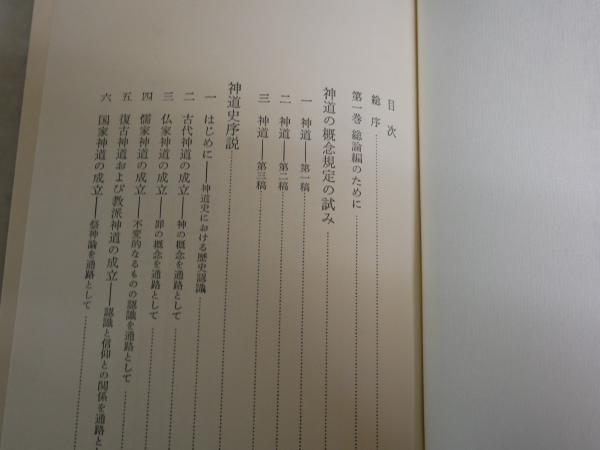 目次
総序
第一巻 総論編のために
神道の概念規定の試み
一 神道――第一稿
二 神道――第二稿
三 神道――第三稿
神道史序説
一 はじめに――神道史における歴史認識
二 古代神道の成立――神の概念を通路として
三 仏家神道の成立――罪の概念を通路として
四 儒家神道の成立――不変的なるものの認識を通路として
五 復古神道および教派神道の成立――認識と信仰との関係を通路とし
六 国家神道の成立――祭神論を通路として